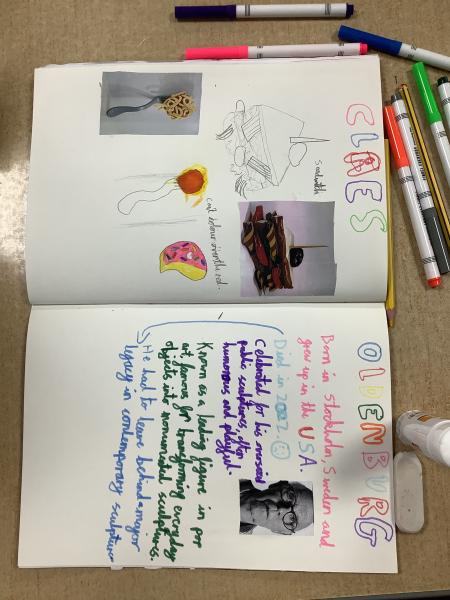 CLAES
OLDENBURG
Sandwich
Born in Stockholm, Sweden and
grew up in the USA.
Died in 2022.
Celebrated for his
public sculptures, often
humorous and playful.
Known as a leading figure in pop
art, famous for transforming everyday
objects into monumental sculptures.
He had to leave behind a major
legacy in contemporary sculpture